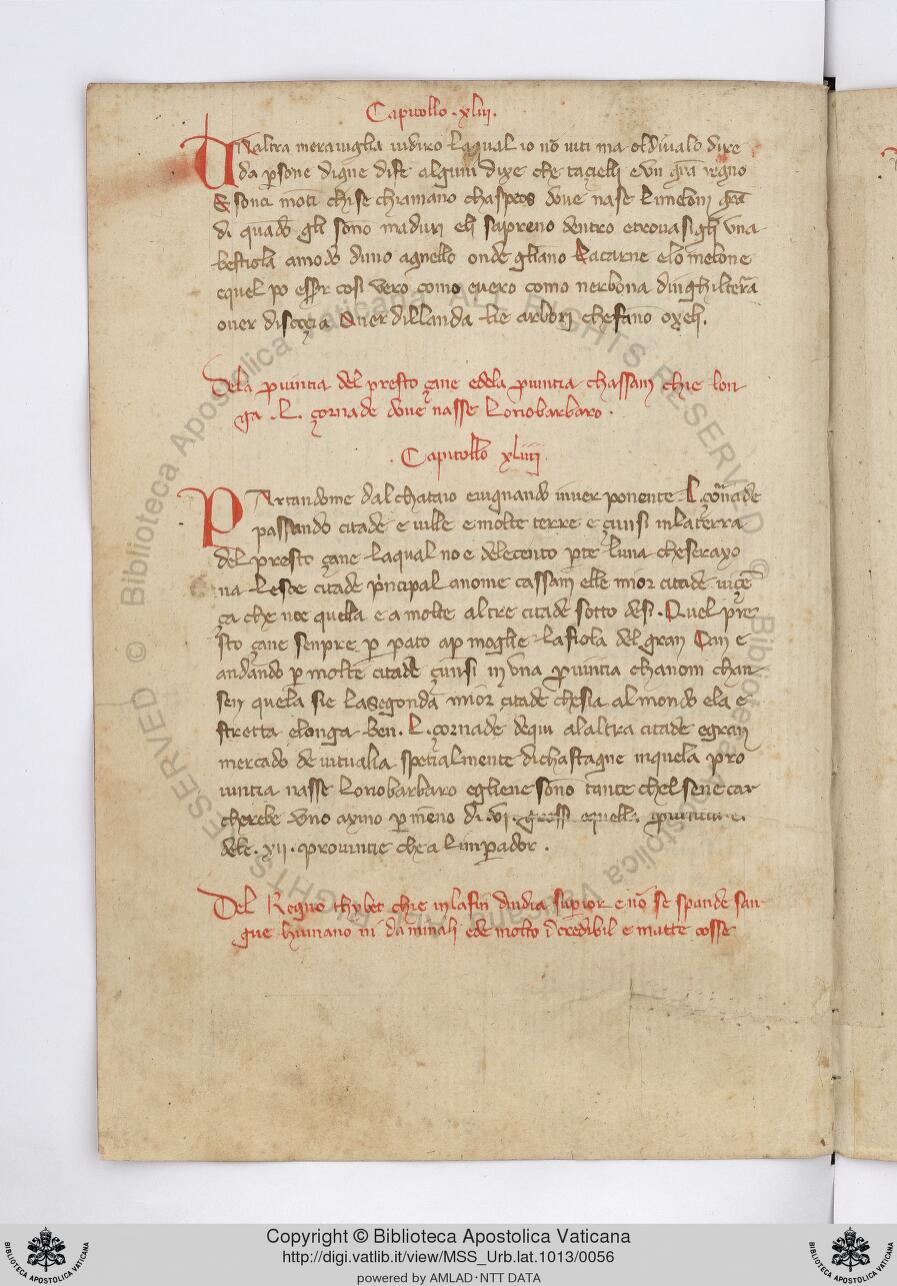 Capitollo .xliii.
Unaltra meraviglia vudiro laqual io nõ viti ma oldivalo dire
da psone digne dife alguni dixe che taçielli evn grã regno
& sono mõti chise chiamano chaspeos dove nase li meloni grã
di quãdo gli sono maduri eli sapreno dentro etrovasigli vna
bestiola amodo duno agnello onde gliano lacarne elo melone
equel po esser cosi vero como evero como nerbona dinghilterã
over discoçia Over dillanda lie arbori chefano oxeli.
Dela pvintia del presto çane edela pvintia chassani chie lon-
ga .L. çornade dove nasse Loriobarbaro .
. Capitollo xliiii.
PArtandome dal chataio evignando inver ponente .L. çornade
passando citade e ville e molte terre e çunsi inlaterra
del presto çane laqual no e delecento pte luna cheseraxo
na Lesoe citade principal anome cassani elle mior citade viçe
ça che noe quella e a molte altre citade sotto desi . Quel pre
sto çane senpre p pato ap moglie lafiola del gran Can e
andando p molte citade çunsi in vna pvintia chanom chan
sen quela sie lasegonda mior citade chesia al mondo ela e
stretta elonga ben .L. çornade dequi alaltra citade egran
mercado de vitualia spetialmente dichastagne inquela pro
vintia nasse Loriobarbaro egliene sono tante chel sene car
cherebe vno axino p meno di .vi. grossi equella pvintia.e.
dele .xii. provintie chea limpador .
Del Regno thybet chie inlafin dindia supior e nõ se spande san-
gue humano ni danimali ede molto incredibil e matte cosse
Copyright © Biblioteca Apostolica Vaticana
http://digi.vatlib.it/view/MSS_Urb.lat.1013/0056
powered by AMLAD · NTT DATA